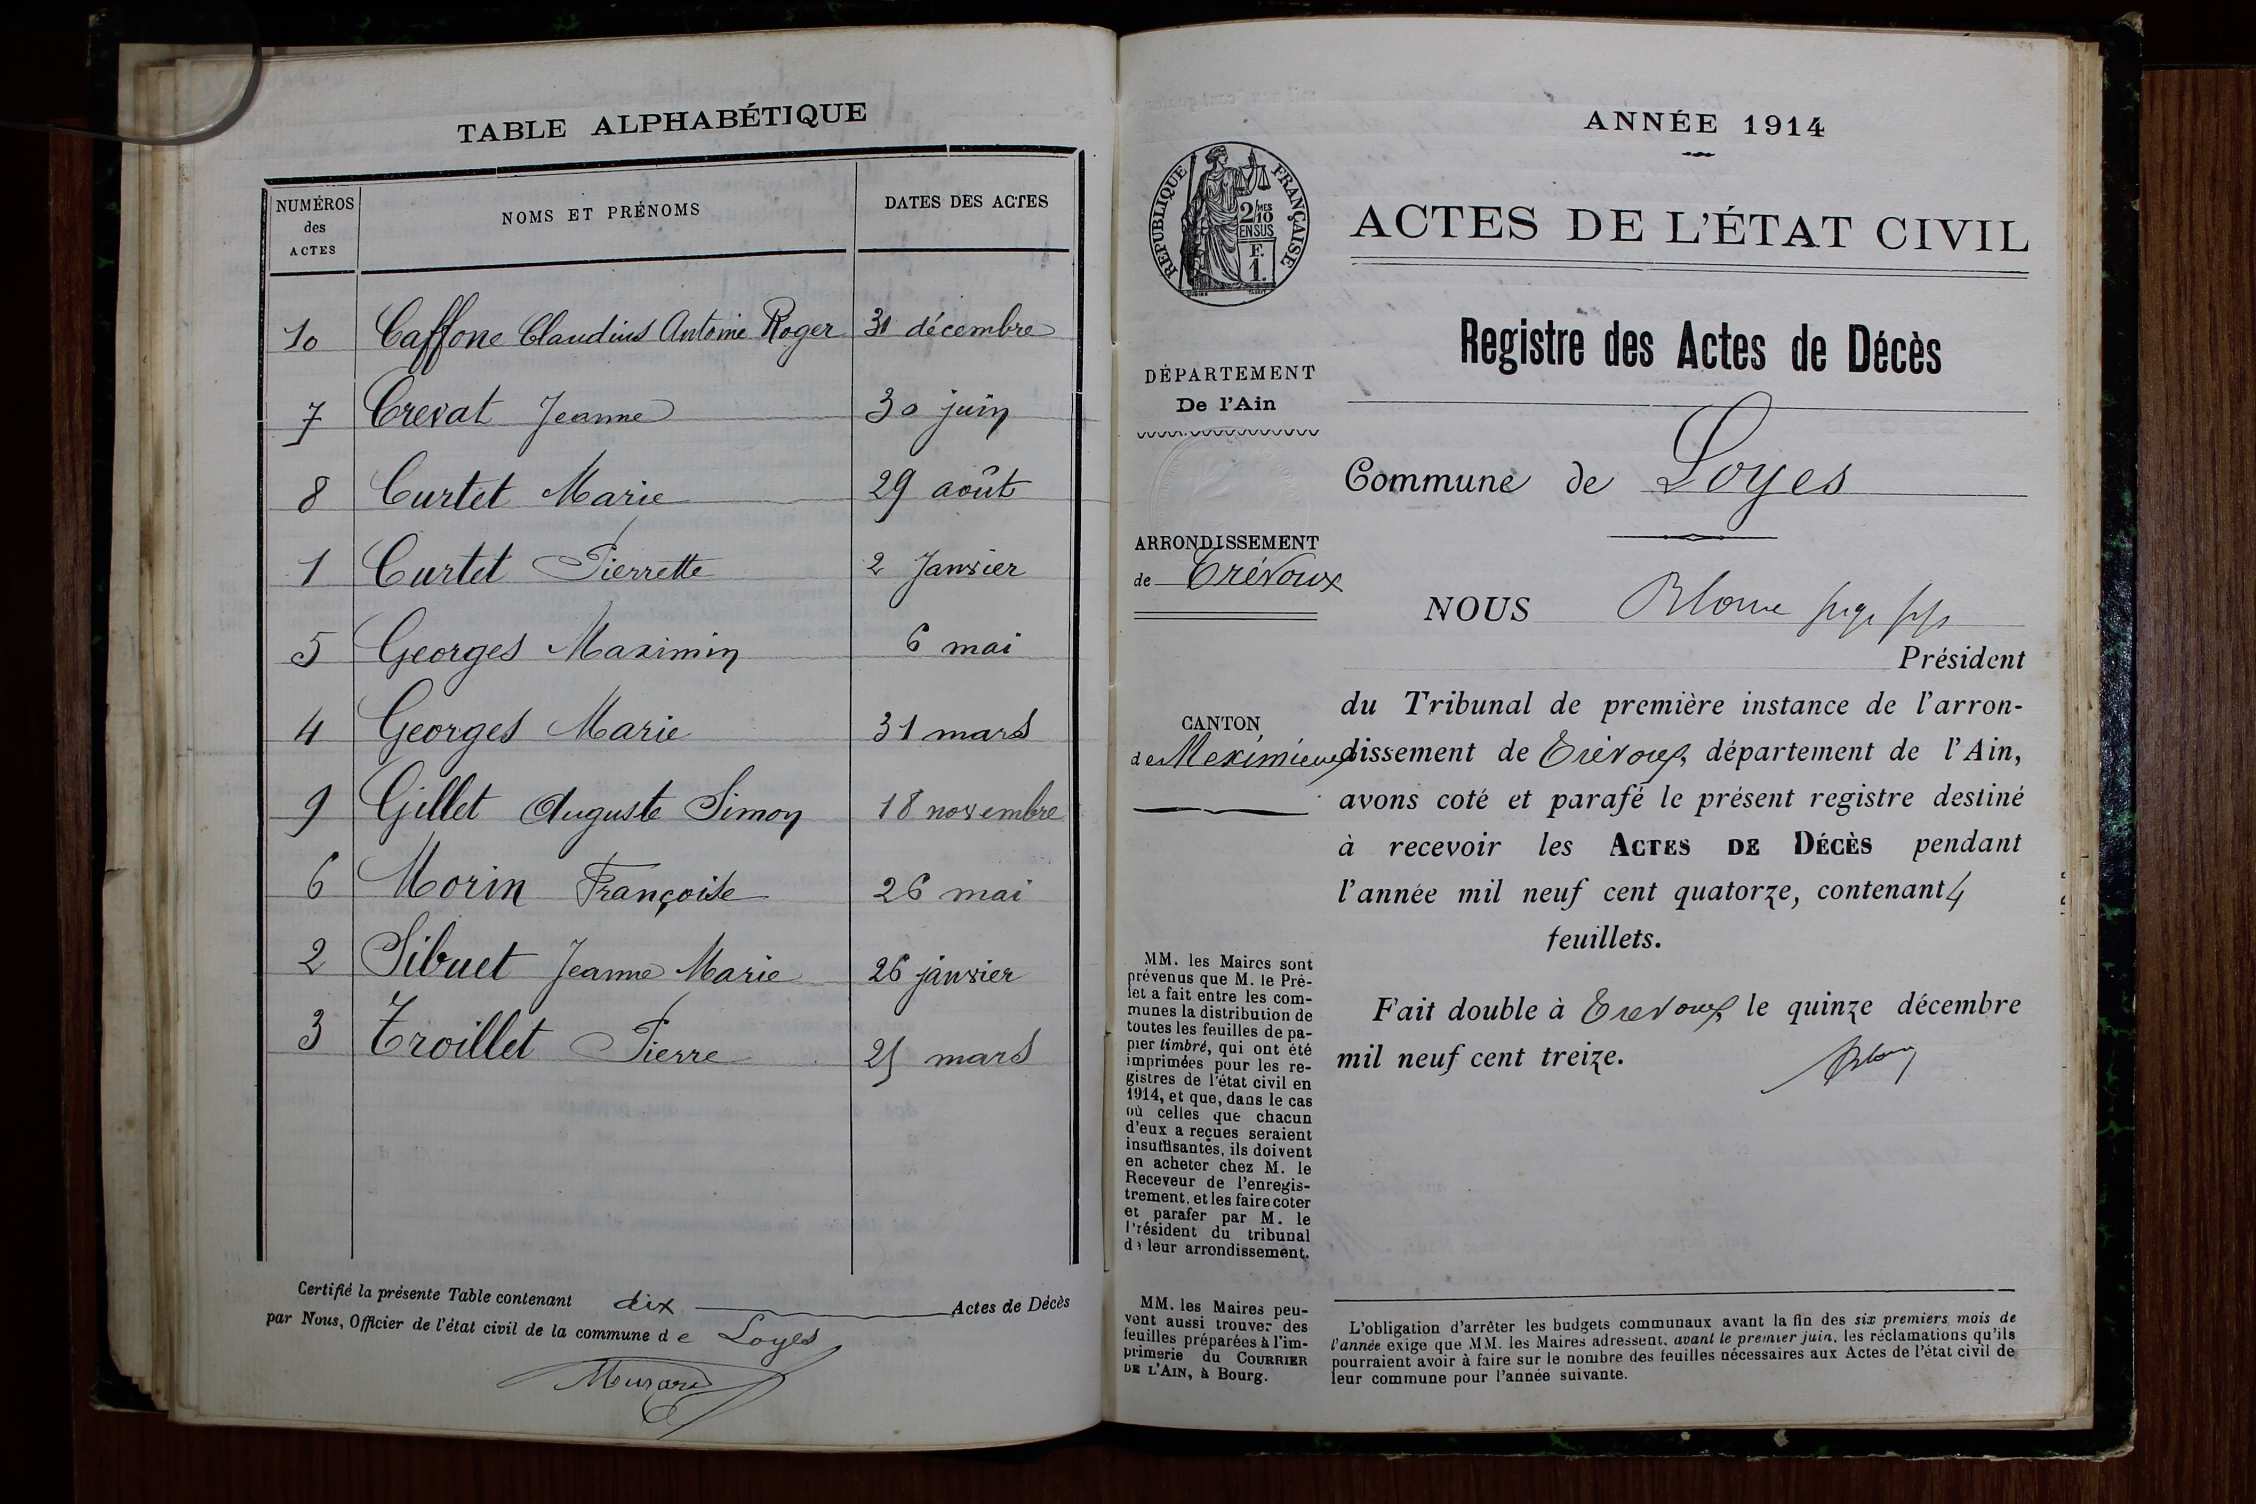 TABLE ALPHABÉTIQUE
NUMÉROS des ACTES NOMS ET PRÉNOMS DATES DES ACTES
10 Caffone Claudius Antoine Roger 31 décembre
7 Crevat Jeanne 30 juin
8 Curtet Marie 29 août
1 Curtet Pierrette 2 Janvier
5 Georges Maximin 6 mai
4 Georges Marie 31 mars
9 Gillet Auguste Simon 18 novembre
6 Morin Françoise 26 mai
2 Sibuet Jeanne Marie 26 janvier
3 Troillet Pierre 25 mars
Certifié la présente Table contenant dix Actes de Décès
par Nous, Officier de l'état civil de la commune de Loyes
ANNÉE 1914
ACTES DE L'ÉTAT CIVIL
RÉPUBLIQUE FRANÇAISE
2/10 MES
EN SUS
F.
1.
Registre des Actes de Décès
DÉPARTEMENT
De l'Ain
Commune de Loyes
ARRONDISSEMENT
de Trévoux
CANTON
de Meximieux
NOUS
Président
du Tribunal de première instance de l'arron-
dissement de Trévoux, département de l'Ain,
avons coté et parafé le présent registre destiné
à recevoir les ACTES DE DÉCÈS pendant
l'année mil neuf cent quatorze, contenant 4
feuillets.
Fait double à Trevoux, le quinze décembre
mil neuf cent treize.
MM. les Maires sont
prévenus que M. le Pré-
fet a fait entre les com-
munes la distribution de
toutes les feuilles de pa-
pier timbré, qui ont été
imprimées pour les re-
gistres de l'état civil en
1914, et que, dans le cas
où celles que chacun
d'eux a reçues seraient
insuffisantes, ils doivent
en acheter chez M. le
Receveur de l'enregis-
trement, et les faire coter
et parafer par M. le
Président du tribunal
de leur arrondissement.
MM. les Maires peu-
vent aussi trouver des
feuilles préparées à l'im-
primerie du COURRIER
DE L'AIN, à Bourg.
L'obligation d'arrêter les budgets communaux avant la fin des six premiers mois de
l'année exige que MM. les Maires adressent, avant le premier juin, les réclamations qu'ils
pourraient avoir à faire sur le nombre des feuilles nécessaires aux Actes de l'état civil de
leur commune pour l'année suivante.